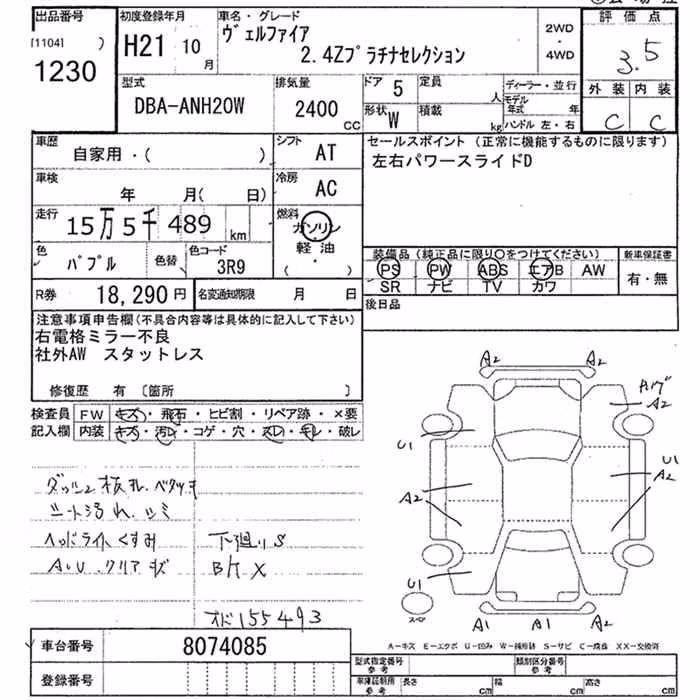 出品番号
[1104] )
1230
初度登録年月
H21 10月
車名・グレード
ヴェルファイア
2.4Zプラチナセレクション
2WD
・
4WD
評価点
3.5
外装 内装
C C
型式
DBA-ANH20W
排気量
2400
CC
ドア 5
定員 人
形状 W
積載 kg
ディーラー・並行
モデル年式 年
ハンドル 左・右
車歴
自家用・( )
シフト AT
車検
年 月( 日)
冷房 AC
走行
15万5千489 km
燃料
ガソリン
軽油
( ・ )
色
パプル
色替
色コード
3R9
R券 18,290円
名変通知期限 月 日
セールスポイント (正常に機能するものに限ります)
左右パワースライドD
装備品(純正品に限り○をつけてください)
PS PW ABS エアB AW
SR ナビ TV カワ
新車保証書
有・無
後日品
注意事項申告欄(不具合内容等は具体的に記入して下さい)
右電格ミラー不良
社外AW スタットレス
修復歴 有 〔箇所 〕
検査員
記入欄
FW キズ・飛石・ヒビ割・リペア跡・×要
内装 キズ・汚れ・コゲ・穴・スレ・モレ・破レ
シート汚れ、シミ
ヘッドライトくすみ
下廻りS
オド155493
A2 A2
A2
U1
U1
A2
A2
U1
A1 A1 A2
スペア
A-キズ E-エクボ U-凹み W-補修跡 S-サビ C-腐蝕 XX-交換済
車台番号 8074085
登録番号
型式指定番号
参考
類別区分番号
参考
車庫証明用
参考
長さ cm
幅 cm
高さ cm